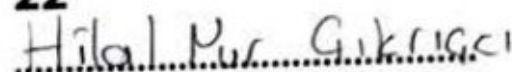 22
Hilal Nur Çıkrıkçı